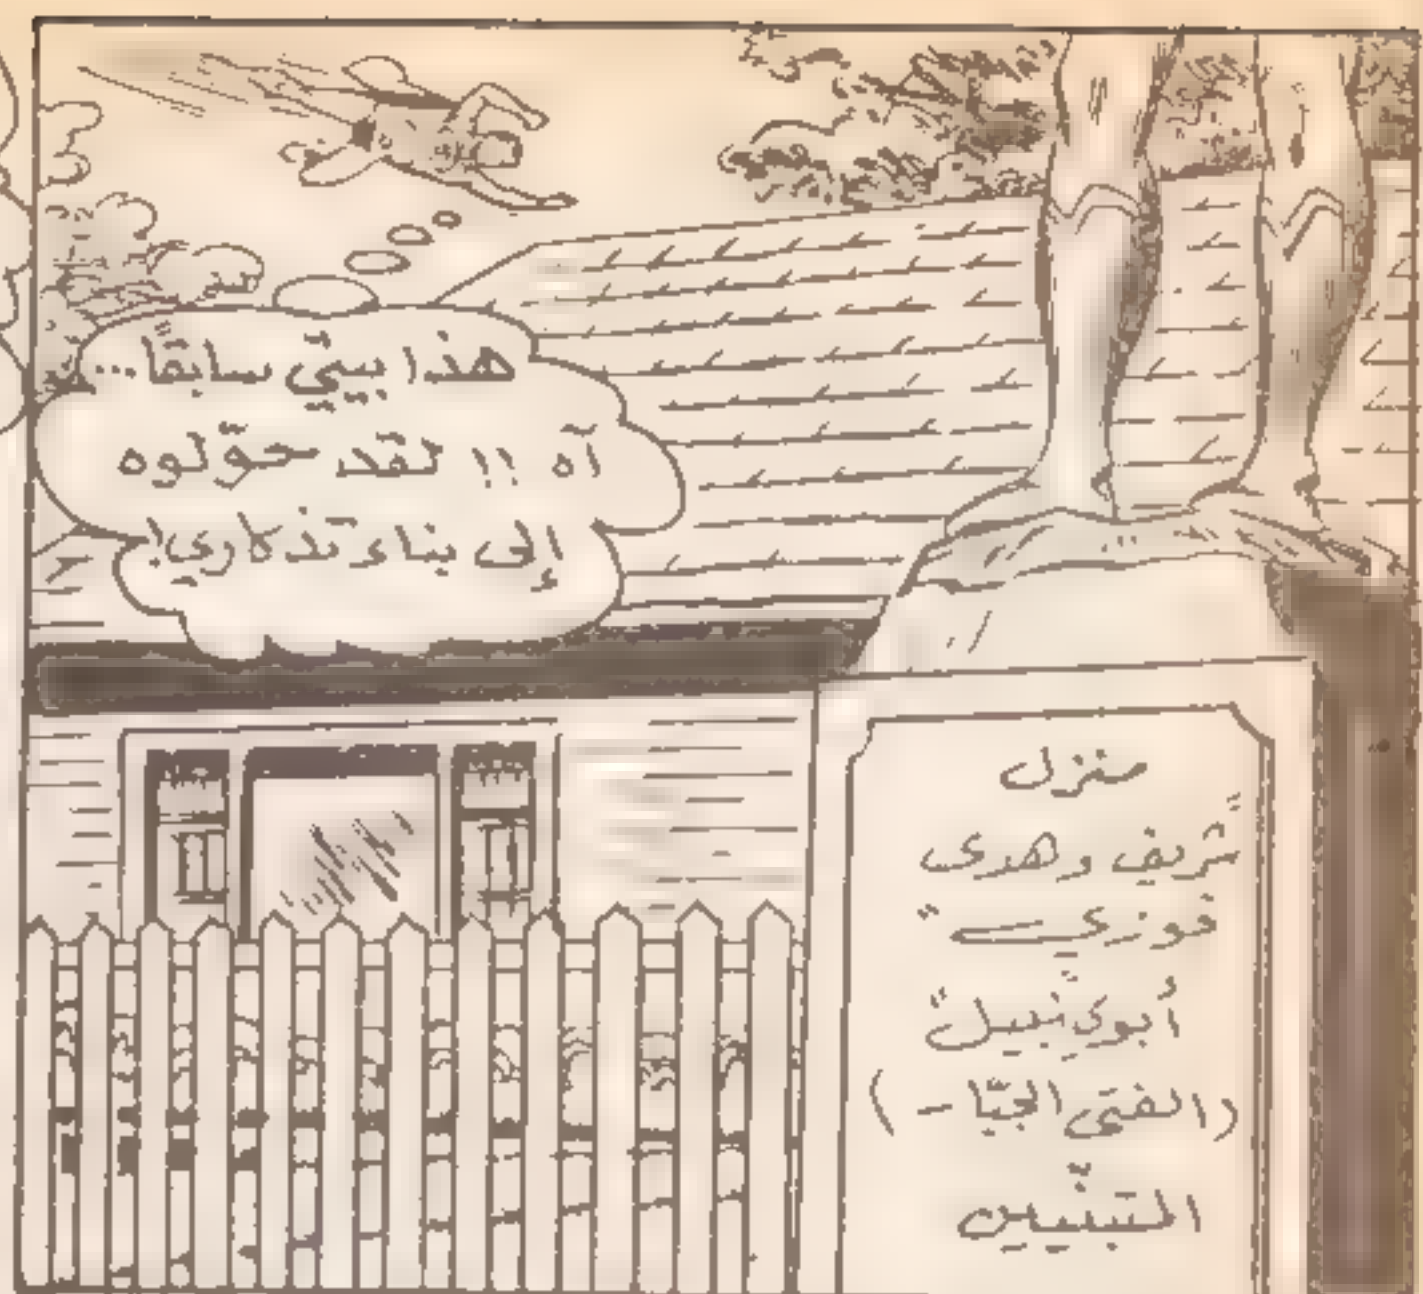 هذا بيتي سابقاً...
آه !! لقد حوّلوه
إلى بناء تذكاري!
منزل
شريف وهدى
فوزي
أبوي نبيل
(الفتى الجبّار)
المتبنّيين